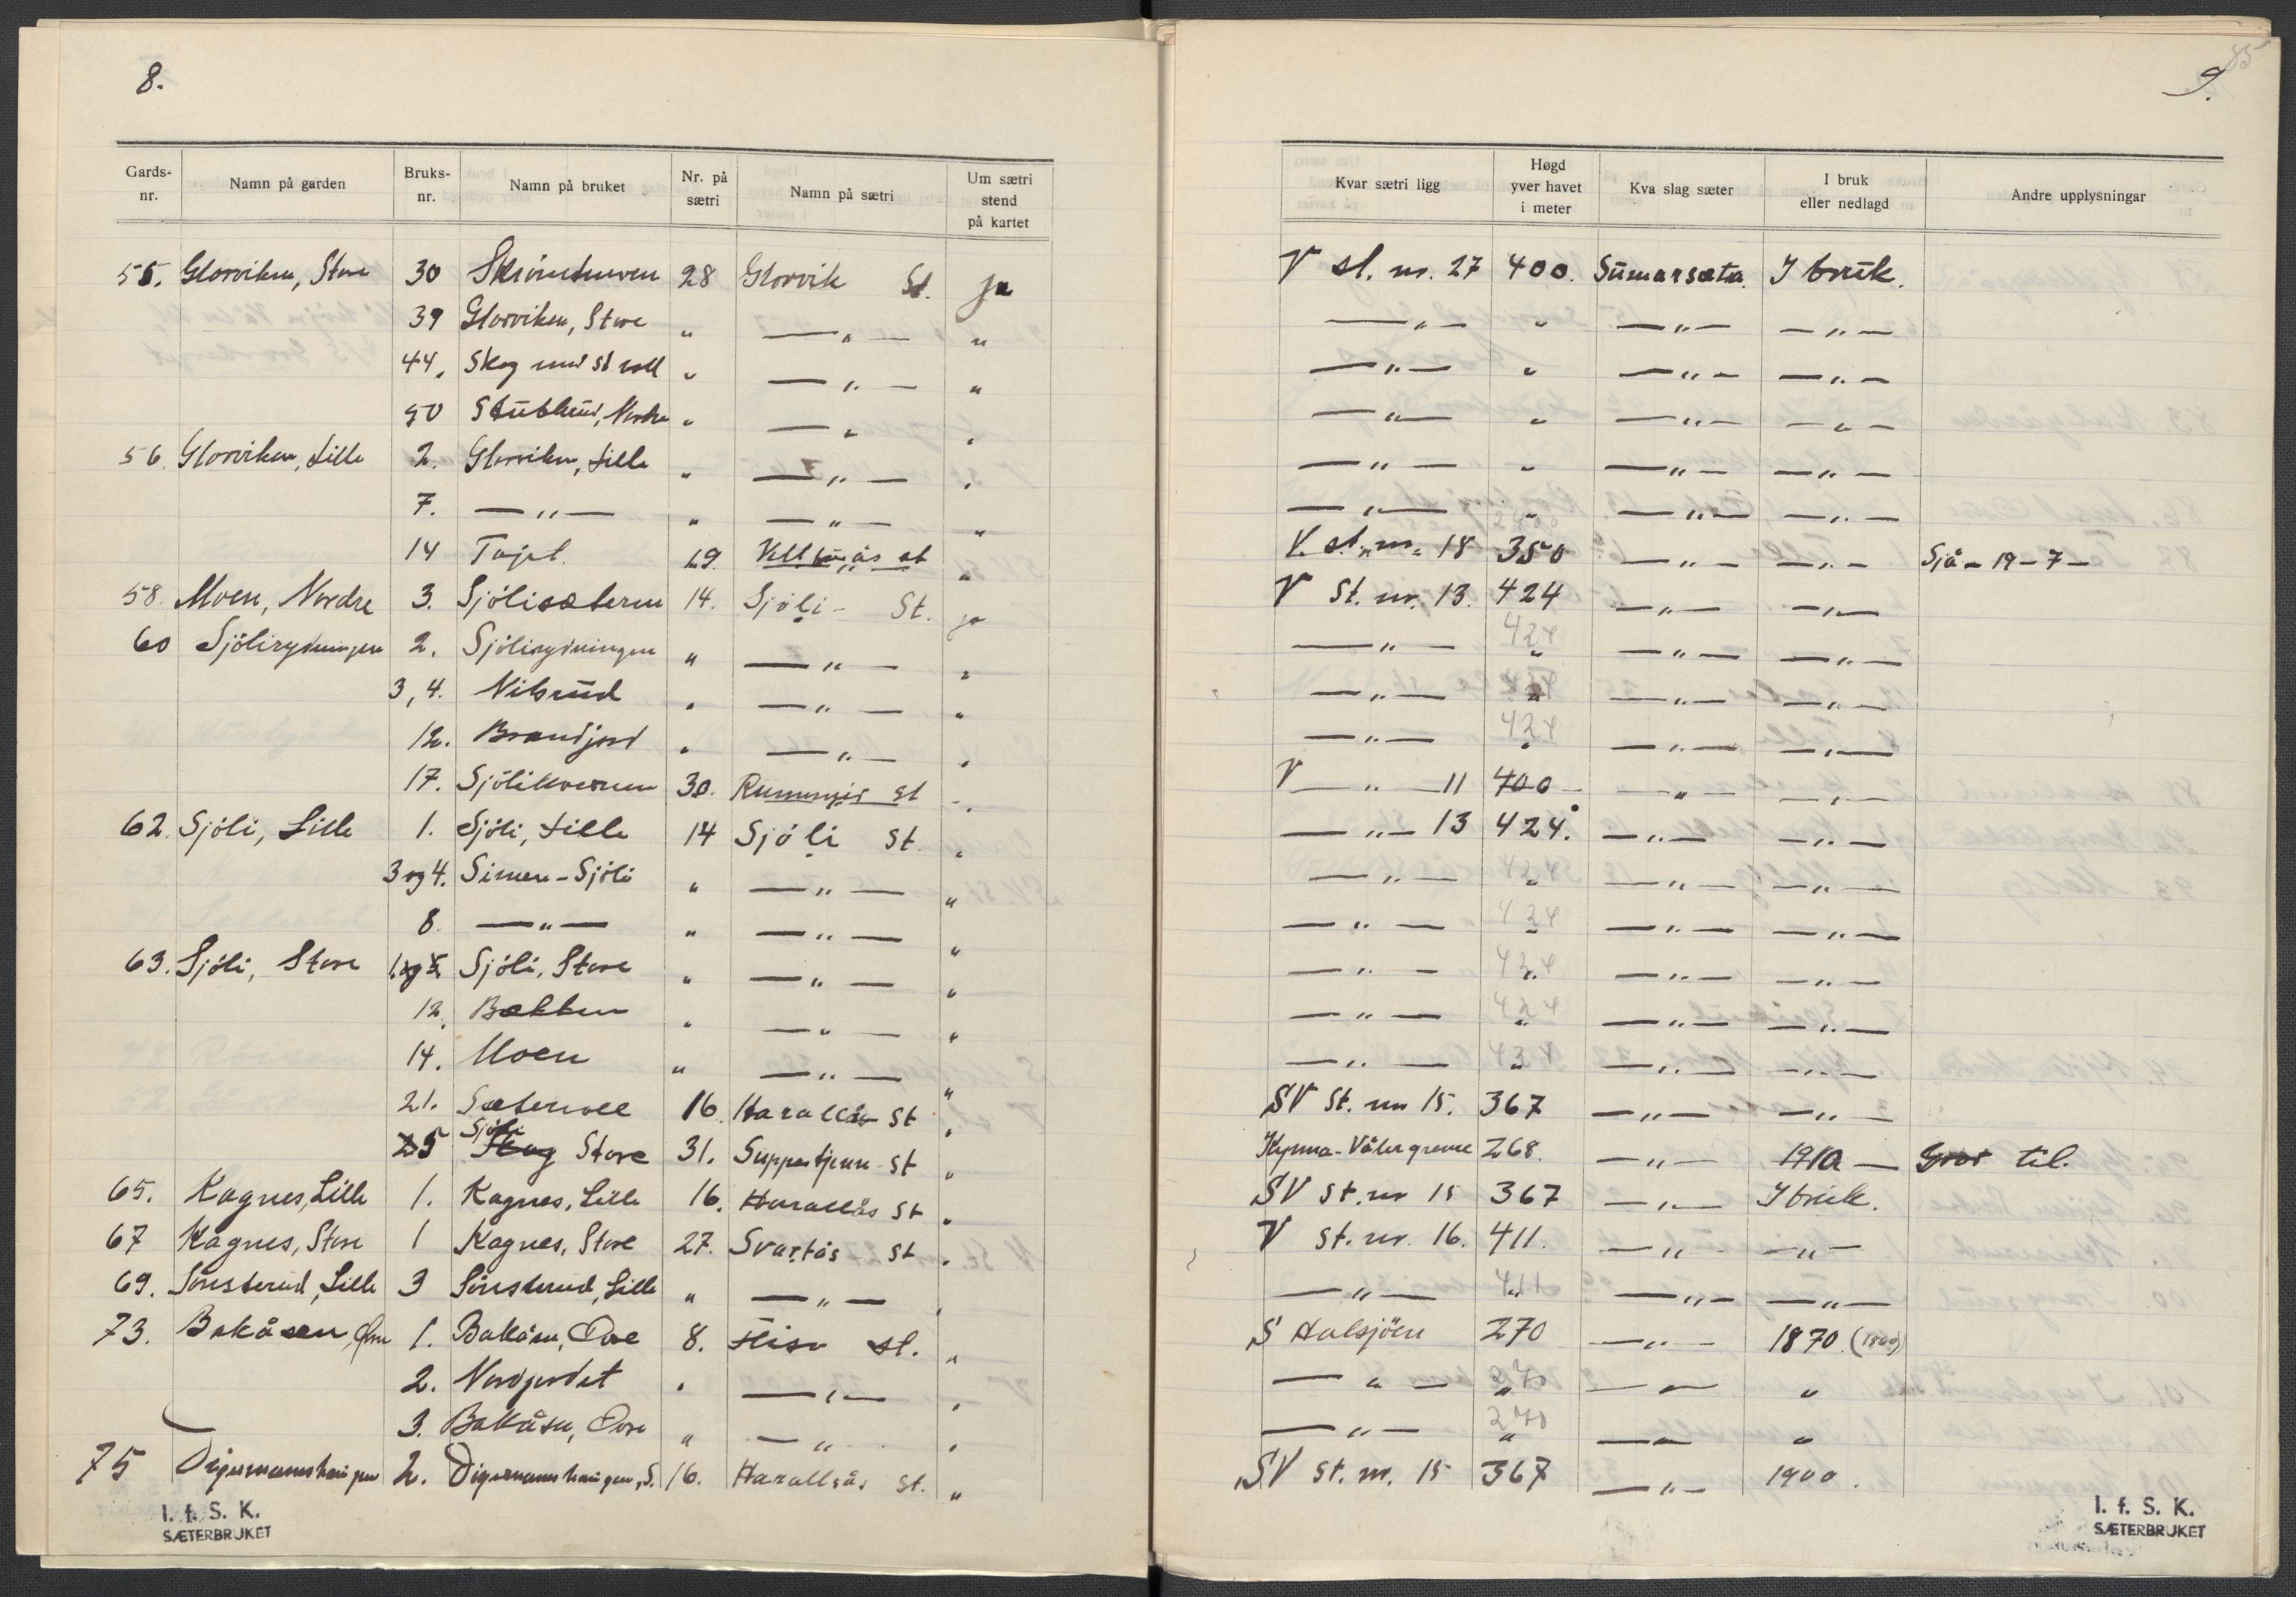 8.
Gards-nr. Namn på garden Bruks-nr. Namn på bruket Nr. på sætri Namn på sætri Um sætri stend på kartet
55. Glorviken, Store 30 28 Glorvik St. ja
39 Glorviken, Store „ —„— „
44. Skog med st voll „ —„— „
50 Stubberud, Nordre „ —„— „
56. Glorviken, Lille 2. Glorviken, Lille „ —„— „
7. —„— „ —„— „
14 Tajet. 29. st „
58. Moen, Nordre 3. Sjölisæteren 14. Sjöli- St. ja
60 Sjölirydningen 2. Sjölirydningen „ —„— „
3, 4. Nilsrud „ —„— „
12. Brandjord „ —„— „
17. Sjölikvernen 30. st „
62. Sjöli, Lille 1. Sjöli, Lille 14 Sjöli St. „
3 og 4. Simen-Sjöli „ —„— „
8. —„— „ —„— „
63. Sjöli, Store Sjöli, Store „ —„— „
12. Bakken „ —„— „
14. Moen „ —„— „
21. Sætervoll 16. Harallås St „
25 Sjöli Skog Store 31. Suppertjenn-St „
65. Kagnes, Lille 1. Kagnes, Lille 16. Harallås St „
67 Kagnes, Store 1 Kagnes, Store 27. Svartås - St „
69. Sönsterud, Lille 3 Sönsterud, Lille „ —„— „
73. Bakåsen, Övre 1. Bakåsen, Övre 8. Flisa st. „
2. Nordjordet „ —„— „
3. Bakåsen, Övre „ —„— „
75 Digermanshaugen 2. Digermanshaugen, S. 16. Harallsås St. „
I. f. S. K.
SÆTERBRUKET
85
9.
Kvar sætri ligg Høgd yver havet i meter Kva slag sæter I bruk eller nedlagd Andre upplysningar
V st. nr. 27 400. Sumarsæter. I bruk.
—„— „ —„— —„—
—„— „ —„— —„—
—„— „ —„— —„—
—„— „ —„— —„—
—„— „ —„— —„—
V. st. nr. 18 350 —„— —„— Sjå - 19 - 7 -
V St. nr. 13. 424 —„— —„—
—„— 424 „ —„— —„—
—„— 424 „ —„— —„—
—„— 424 „ —„— —„—
V —„— 11 400 —„— —„—
—„— 13 424. —„— —„—
—„— 424 „ —„— —„—
—„— 424 „ —„— —„—
—„— 424 „ —„— —„—
—„— 424 „ —„— —„—
—„— 424 „ —„— —„—
SV St. nr 15. 367 —„— —„—
Kynna-Vålergrense 268. —„— 1910 — Gror til.
SV st. nr 15 367 —„— I bruk.
V st. nr. 16. 411. —„— —„—
—„— 411 „ —„— —„—
S Halsjöen 270 —„— 1870. (1860)
—„— 270 „ —„— „
—„— 270 „ —„— „
SV st. nr. 15 367 —„— 1900.
I. f. S. K.
SÆTERBRUKET